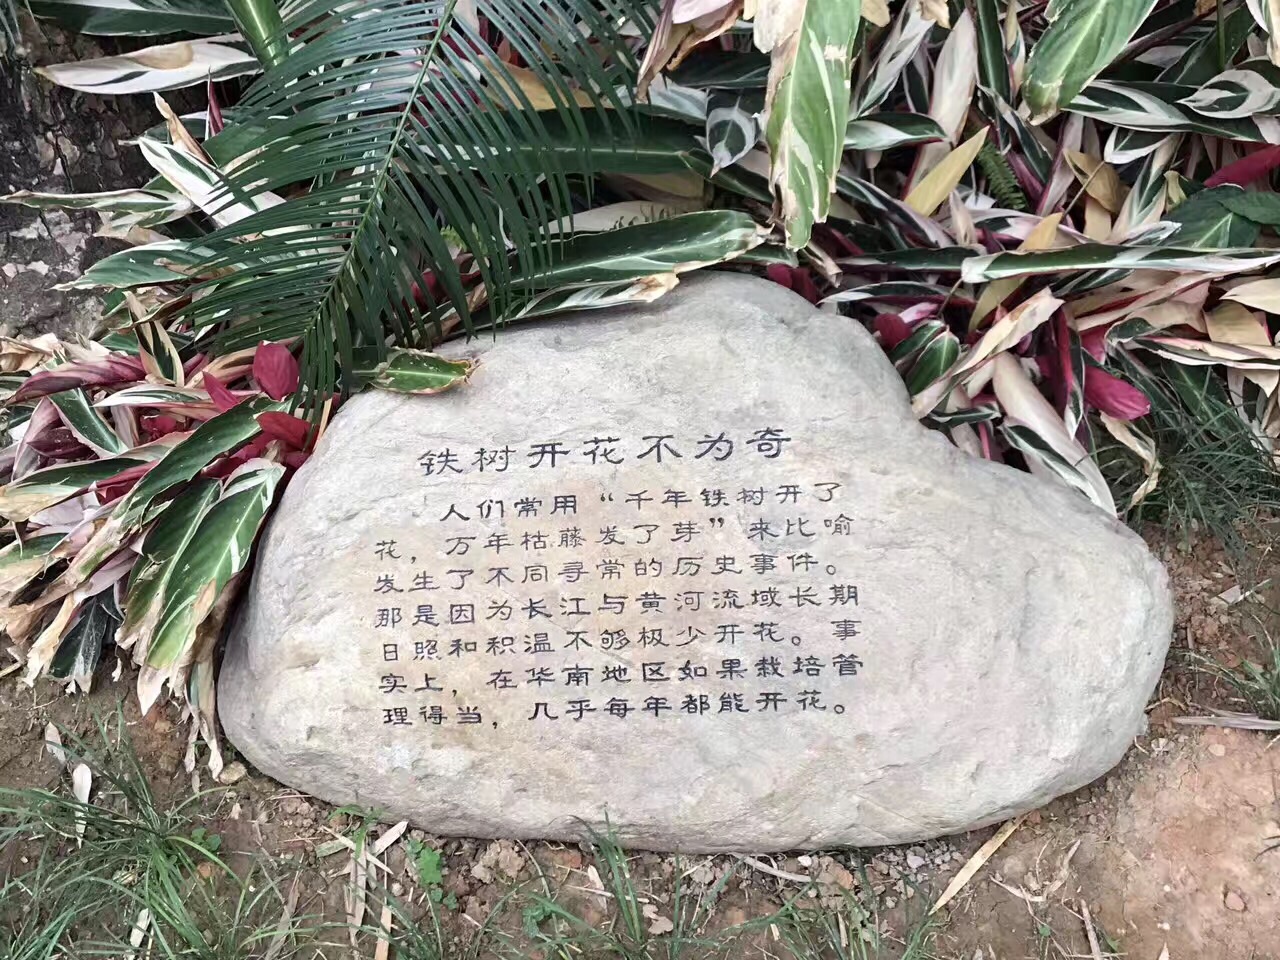 铁树开花不为奇
人们常用“千年铁树开了
花，万年枯藤发了芽”来比喻
发生了不同寻常的历史事件。
那是因为长江与黄河流域长期
日照和积温不够极少开花。事
实上，在华南地区如果栽培管
理得当，几乎每年都能开花。